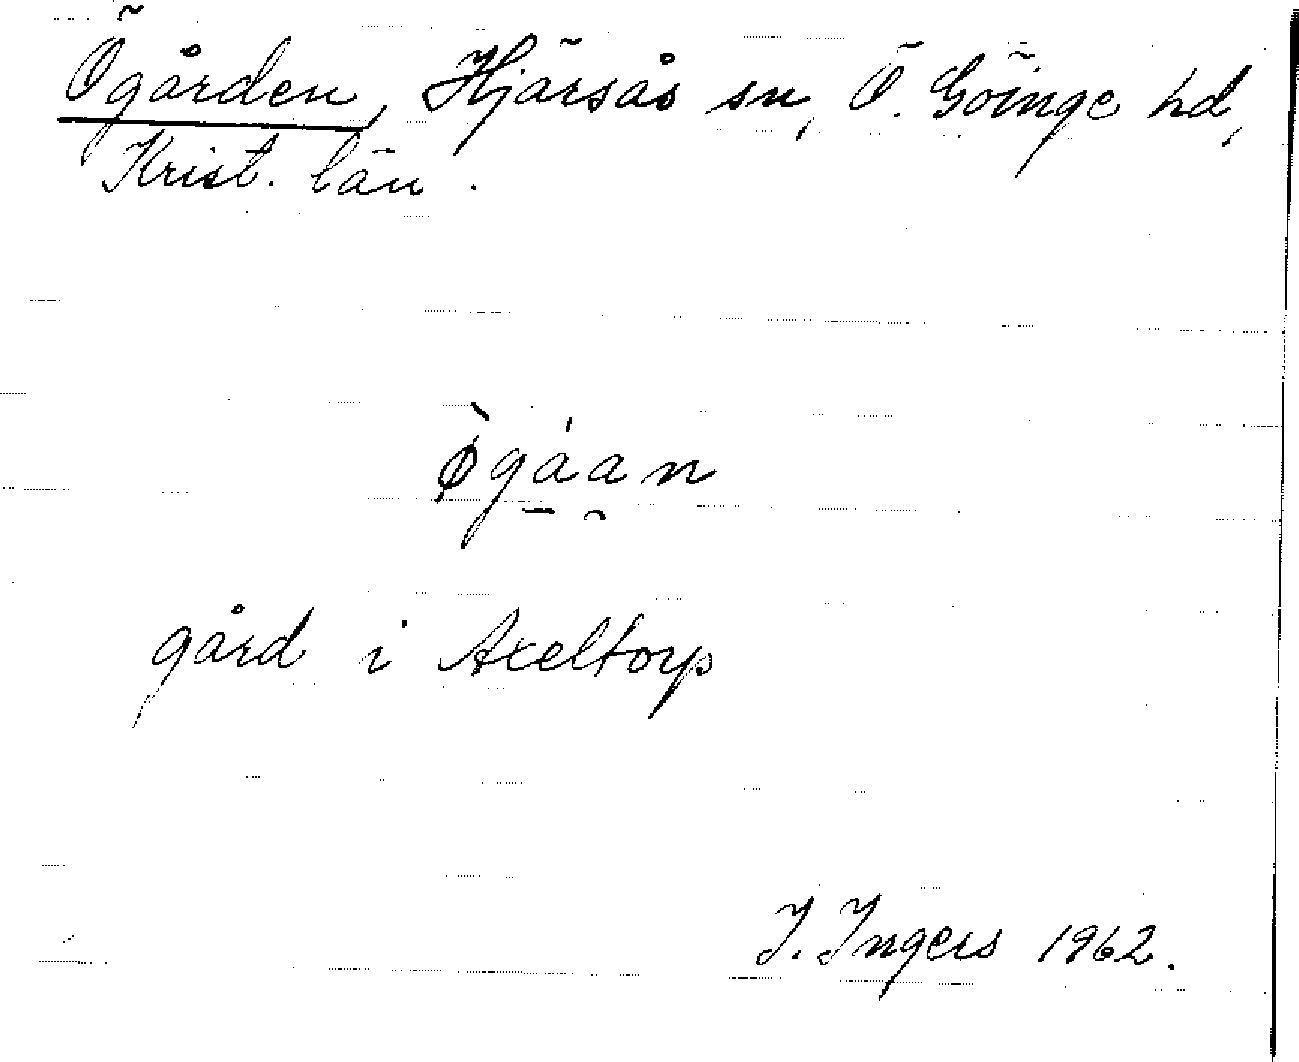 Ögården, Hjärsås sn, Ö. Göinge hd,
Krist. län.
ø̀gá̠a̯n
gård i Axeltorp
I. Ingers 1962.